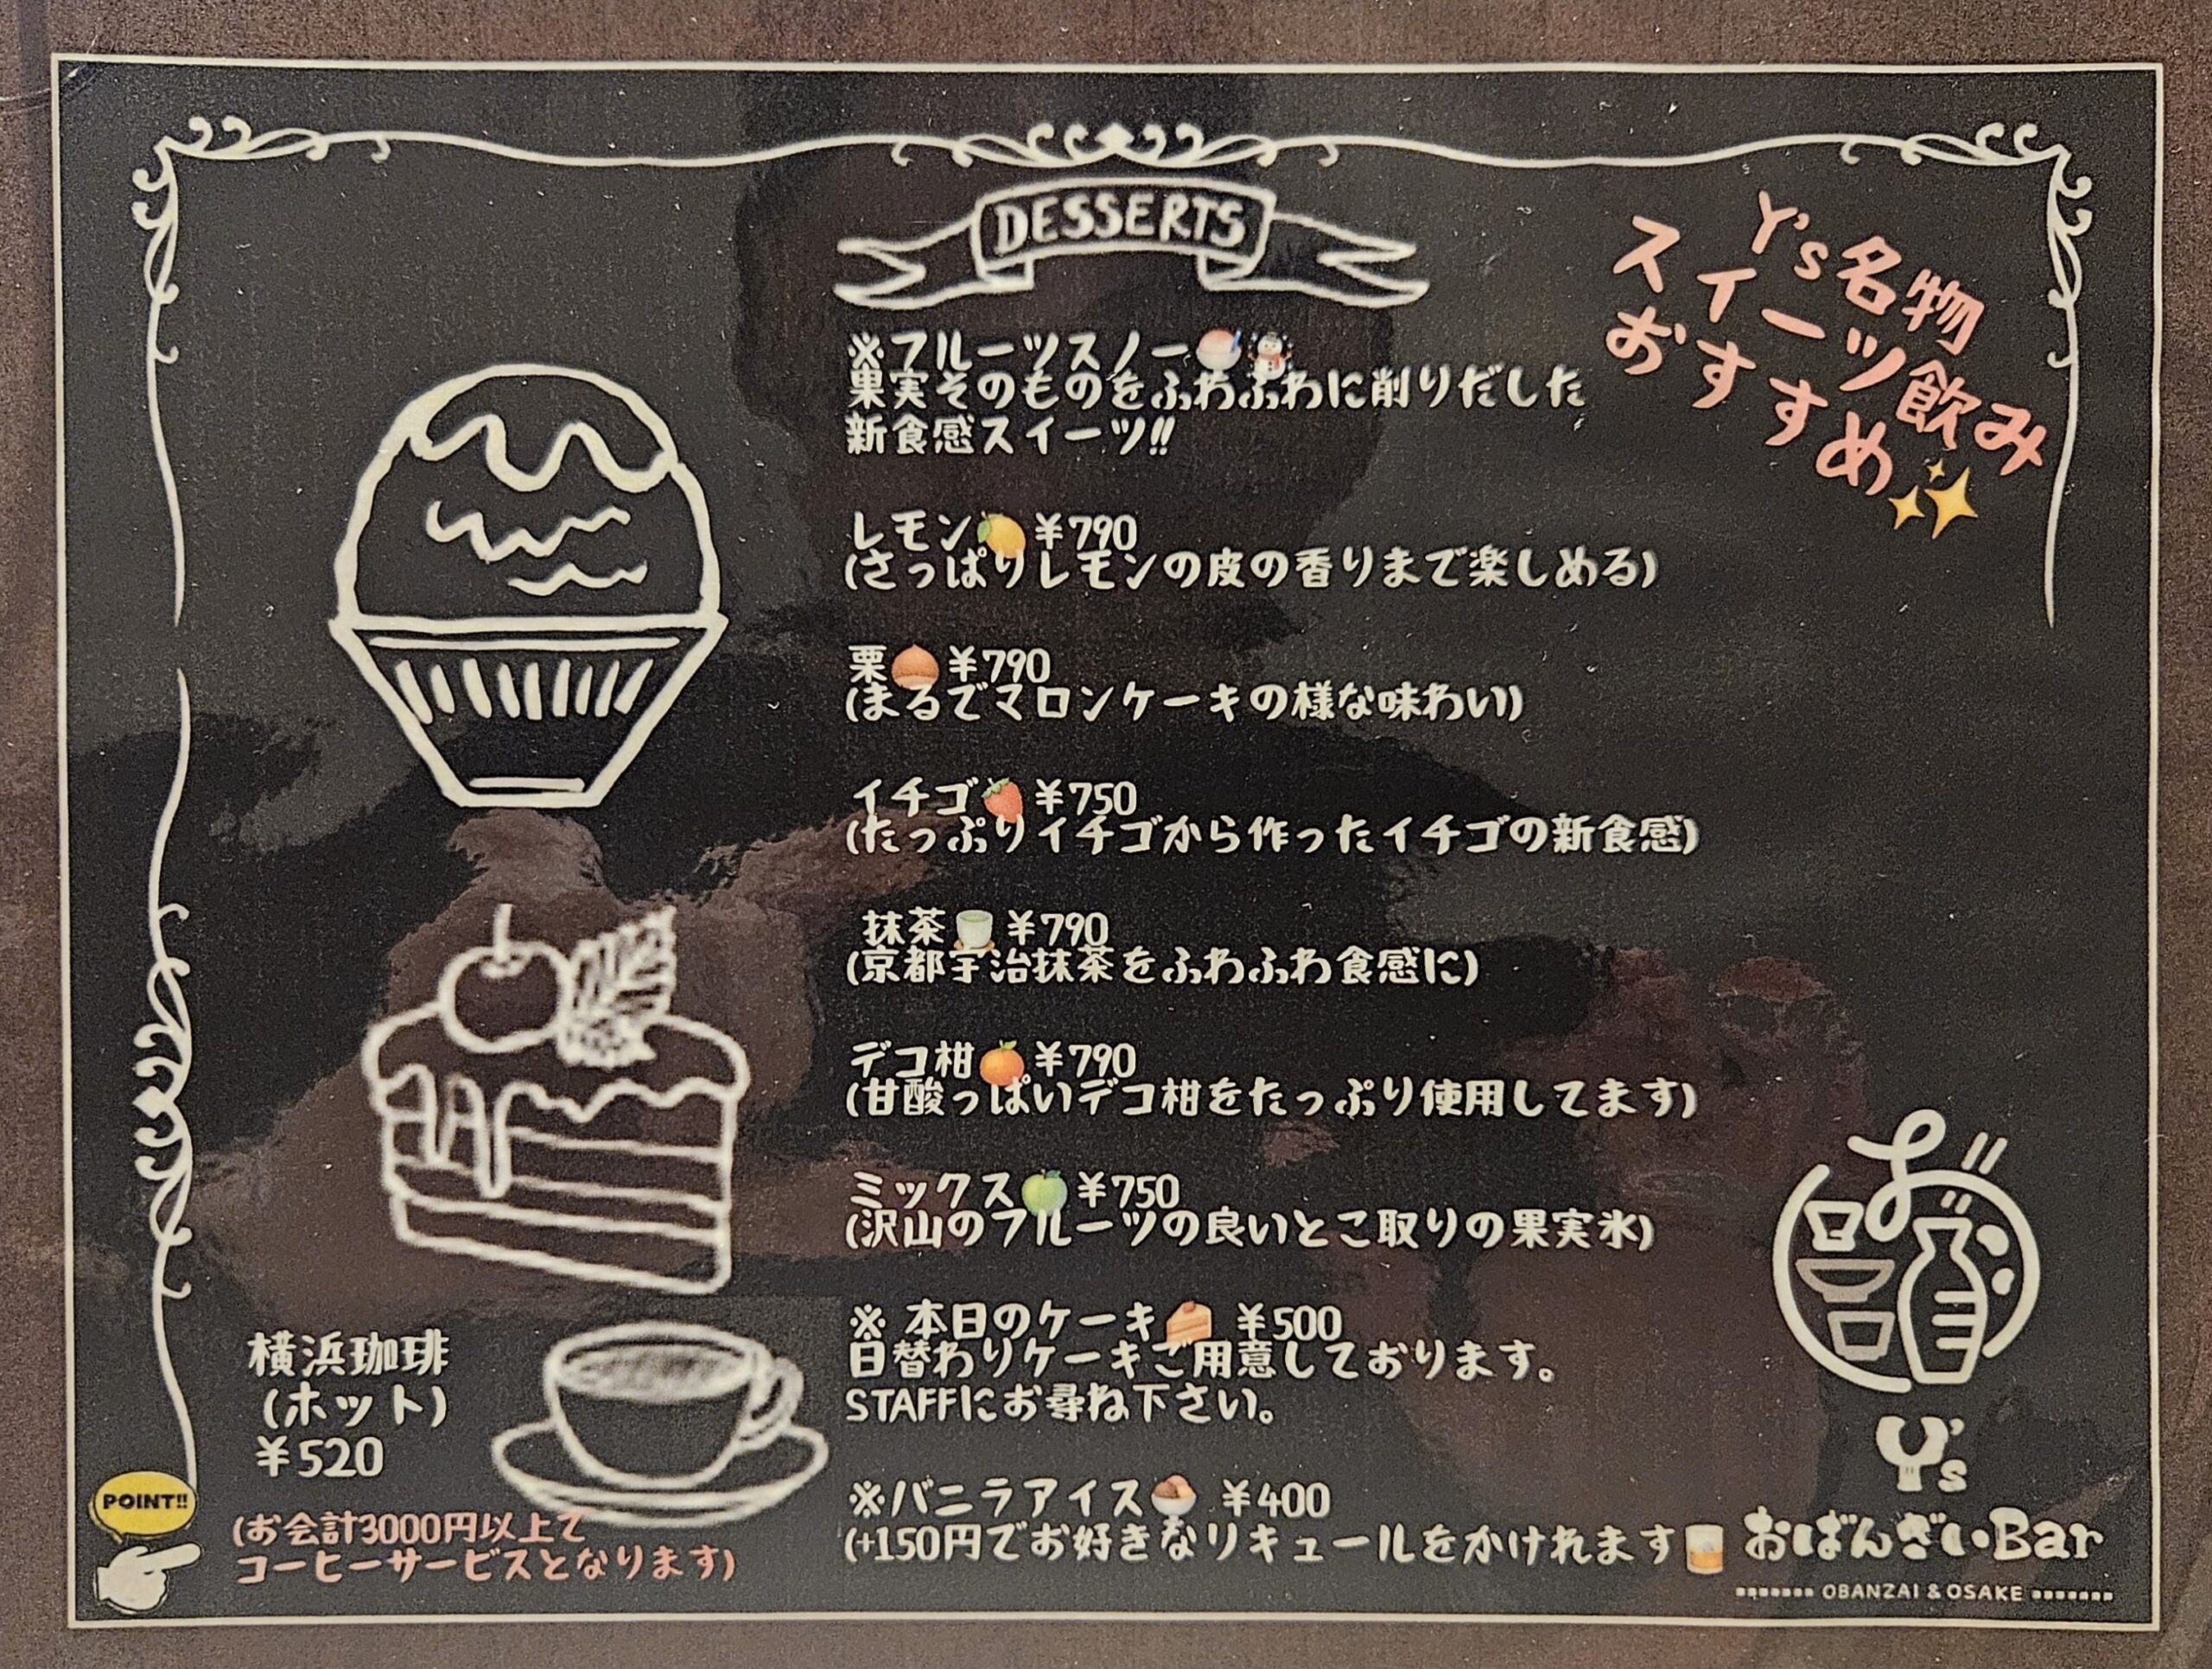 DESSERTS
Y's名物
スイーツ飲み
おすすめ✨
※フルーツスノー🍧⛄
果実そのものをふわふわに削りだした
新食感スイーツ!!
レモン🍋¥790
(さっぱりレモンの皮の香りまで楽しめる)
栗🌰¥790
(まるでマロンケーキの様な味わい)
イチゴ🍓¥750
(たっぷりイチゴから作ったイチゴの新食感)
抹茶🍵¥790
(京都宇治抹茶をふわふわ食感に)
デコ柑🍊¥790
(甘酸っぱいデコ柑をたっぷり使用してます)
ミックス🍏¥750
(沢山のフルーツの良いとこ取りの果実氷)
※ 本日のケーキ🍰 ¥500
日替わりケーキご用意しております。
STAFFにお尋ね下さい。
※バニラアイス🍨 ¥400
(+150円でお好きなリキュールをかけれます🥃
横浜珈琲
(ホット)
¥520
POINT!!
(お会計3000円以上で
コーヒーサービスとなります)
お
Y's
おばんざいBar
OBANZAI & OSAKE